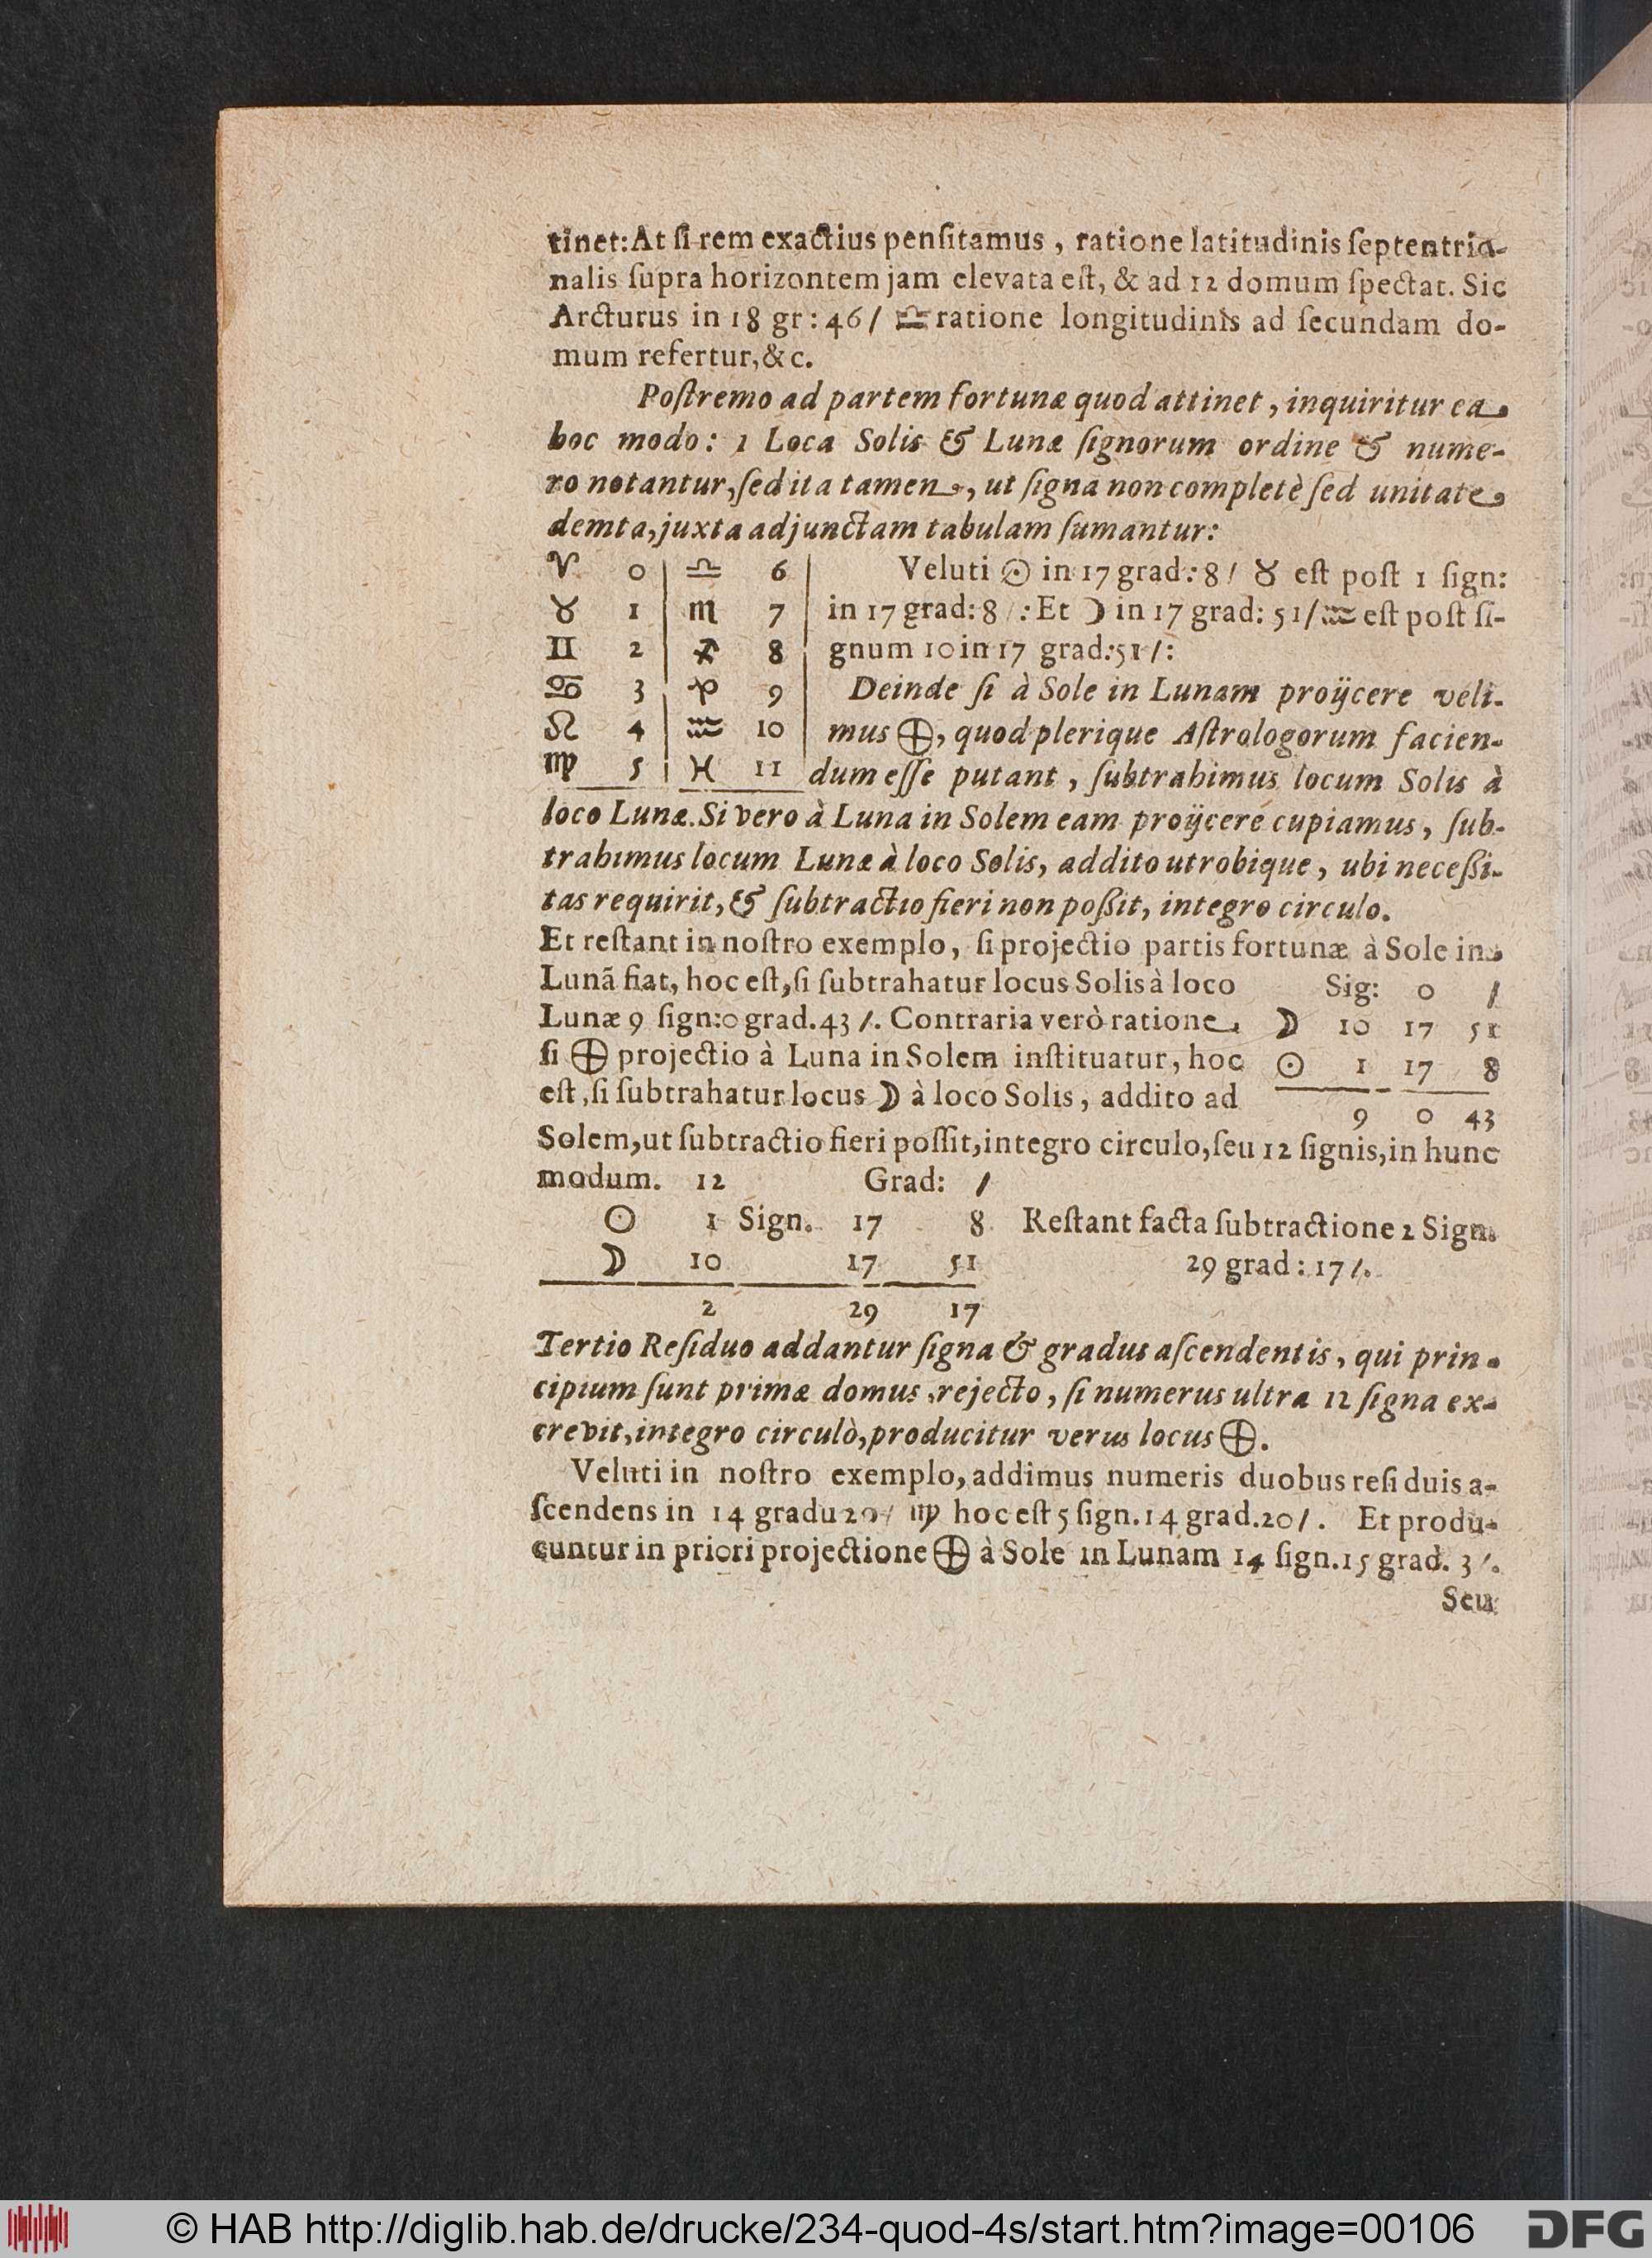 tinet: At ſi rem exactius penſitamus, ratione latitudinis ſeptentrio-
nalis ſupra horizontem jam elevata eſt, & ad 12 domum ſpectat. Sic
Arcturus in 18 gr: 46/ ♎ ratione longitudinis ad ſecundam do-
mum refertur, &c.
Poſtremo ad partem fortunæ quod attinet, inquiritur ea
hoc modo: 1 Loca Solis & Lunæ ſignorum ordine & nume-
ro notantur, ſed ita tamen, ut ſigna non completè ſed unitate
demta, juxta adjunctam tabulam ſumantur:
♈ 0 | ♎ 6 | Veluti ☉ in 17 grad: 8/ ♉ eſt poſt 1 ſign:
♉ 1 | ♏ 7 | in 17 grad: 8/: Et ☽ in 17 grad: 51/ ♒ eſt poſt ſi-
♊ 2 | ♐ 8 | gnum 10 in 17 grad: 51/:
♋ 3 | ♑ 9 | Deinde ſi à Sole in Lunam proijcere veli-
♌ 4 | ♒ 10 | mus ⊕, quod plerique Aſtrologorum facien-
♍ 5 | ♓ 11 | dum eſſe putant, ſubtrahimus locum Solis à
loco Lunæ. Si vero à Luna in Solem eam proijcere cupiamus, ſub-
trahimus locum Lunæ à loco Solis, addito utrobique, ubi neceßi-
tas requirit, & ſubtractio fieri non poßit, integro circulo.
Et reſtant in noſtro exemplo, ſi projectio partis fortunæ à Sole in
Lunã fiat, hoc eſt, ſi ſubtrahatur locus Solis à loco Sig: 0 /
Lunæ 9 ſign: 0 grad. 43 /. Contraria verò ratione, ☽ 10 17 51
ſi ⊕ projectio à Luna in Solem inſtituatur, hoc ☉ 1 17 8
eſt, ſi ſubtrahatur locus ☽ à loco Solis, addito ad 9 0 43
Solem, ut ſubtractio fieri poſſit, integro circulo, ſeu 12 ſignis, in hunc
modum. 12 Grad: /
☉ 1 Sign. 17 8 Reſtant facta ſubtractione 2 Sign.
☽ 10 17 51 29 grad: 17 /.
2 29 17
Tertio Reſiduo addantur ſigna & gradus aſcendentis, qui prin-
cipium ſunt primæ domus, rejecto, ſi numerus ultra 12 ſigna ex-
crevit, integro circulò, producitur verus locus ⊕.
Veluti in noſtro exemplo, addimus numeris duobus reſiduis a-
ſcendens in 14 gradu 20/ ♍ hoc eſt 5 ſign. 14 grad. 20/. Et produ-
cuntur in priori projectione ⊕ à Sole in Lunam 14 ſign. 15 grad. 3/.
Seu
© HAB http://diglib.hab.de/drucke/234-quod-4s/start.htm?image=00106
DFG